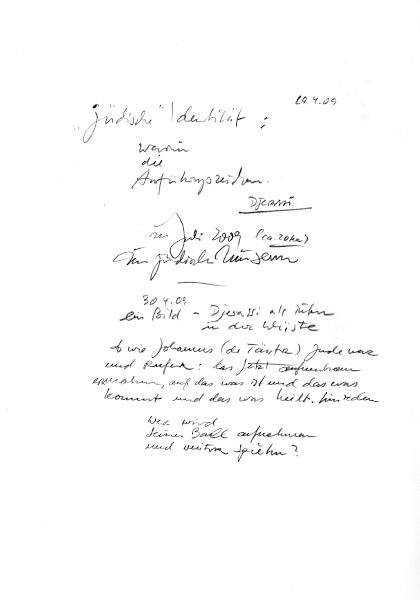 29.4.09
"jüdische" Identität:
warum
die
Anführungszeichen.
Djerassi
im Juli 2009 (ca. 20 Uhr)
im jüdischen Museum
30.4.09
ein Bild – Djerassi als Rufer
in der Wüste
so wie Johannes (der Täufer) Jude war
und Rufer: das Jetzt
, auf das was ist und das was
kommt und das was heilt.
wer wird
seinen Ball aufnehmen
und weiter spielen?